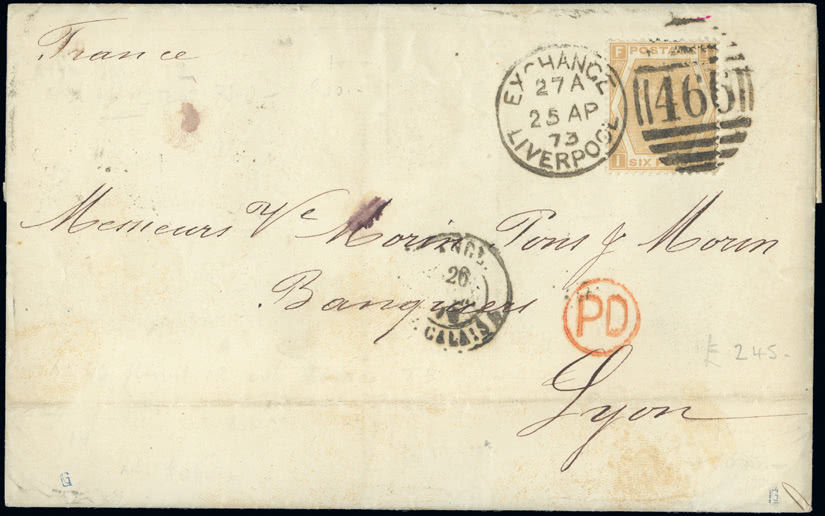 France
F POSTAG
EXCHANGE
27A
25 AP
73
LIVERPOOL
466
I SIX P
Messieurs Ve Morin Pons & Morin
ANGL.
26
CALAIS
Banquiers
PD
£ 245.
Lyon